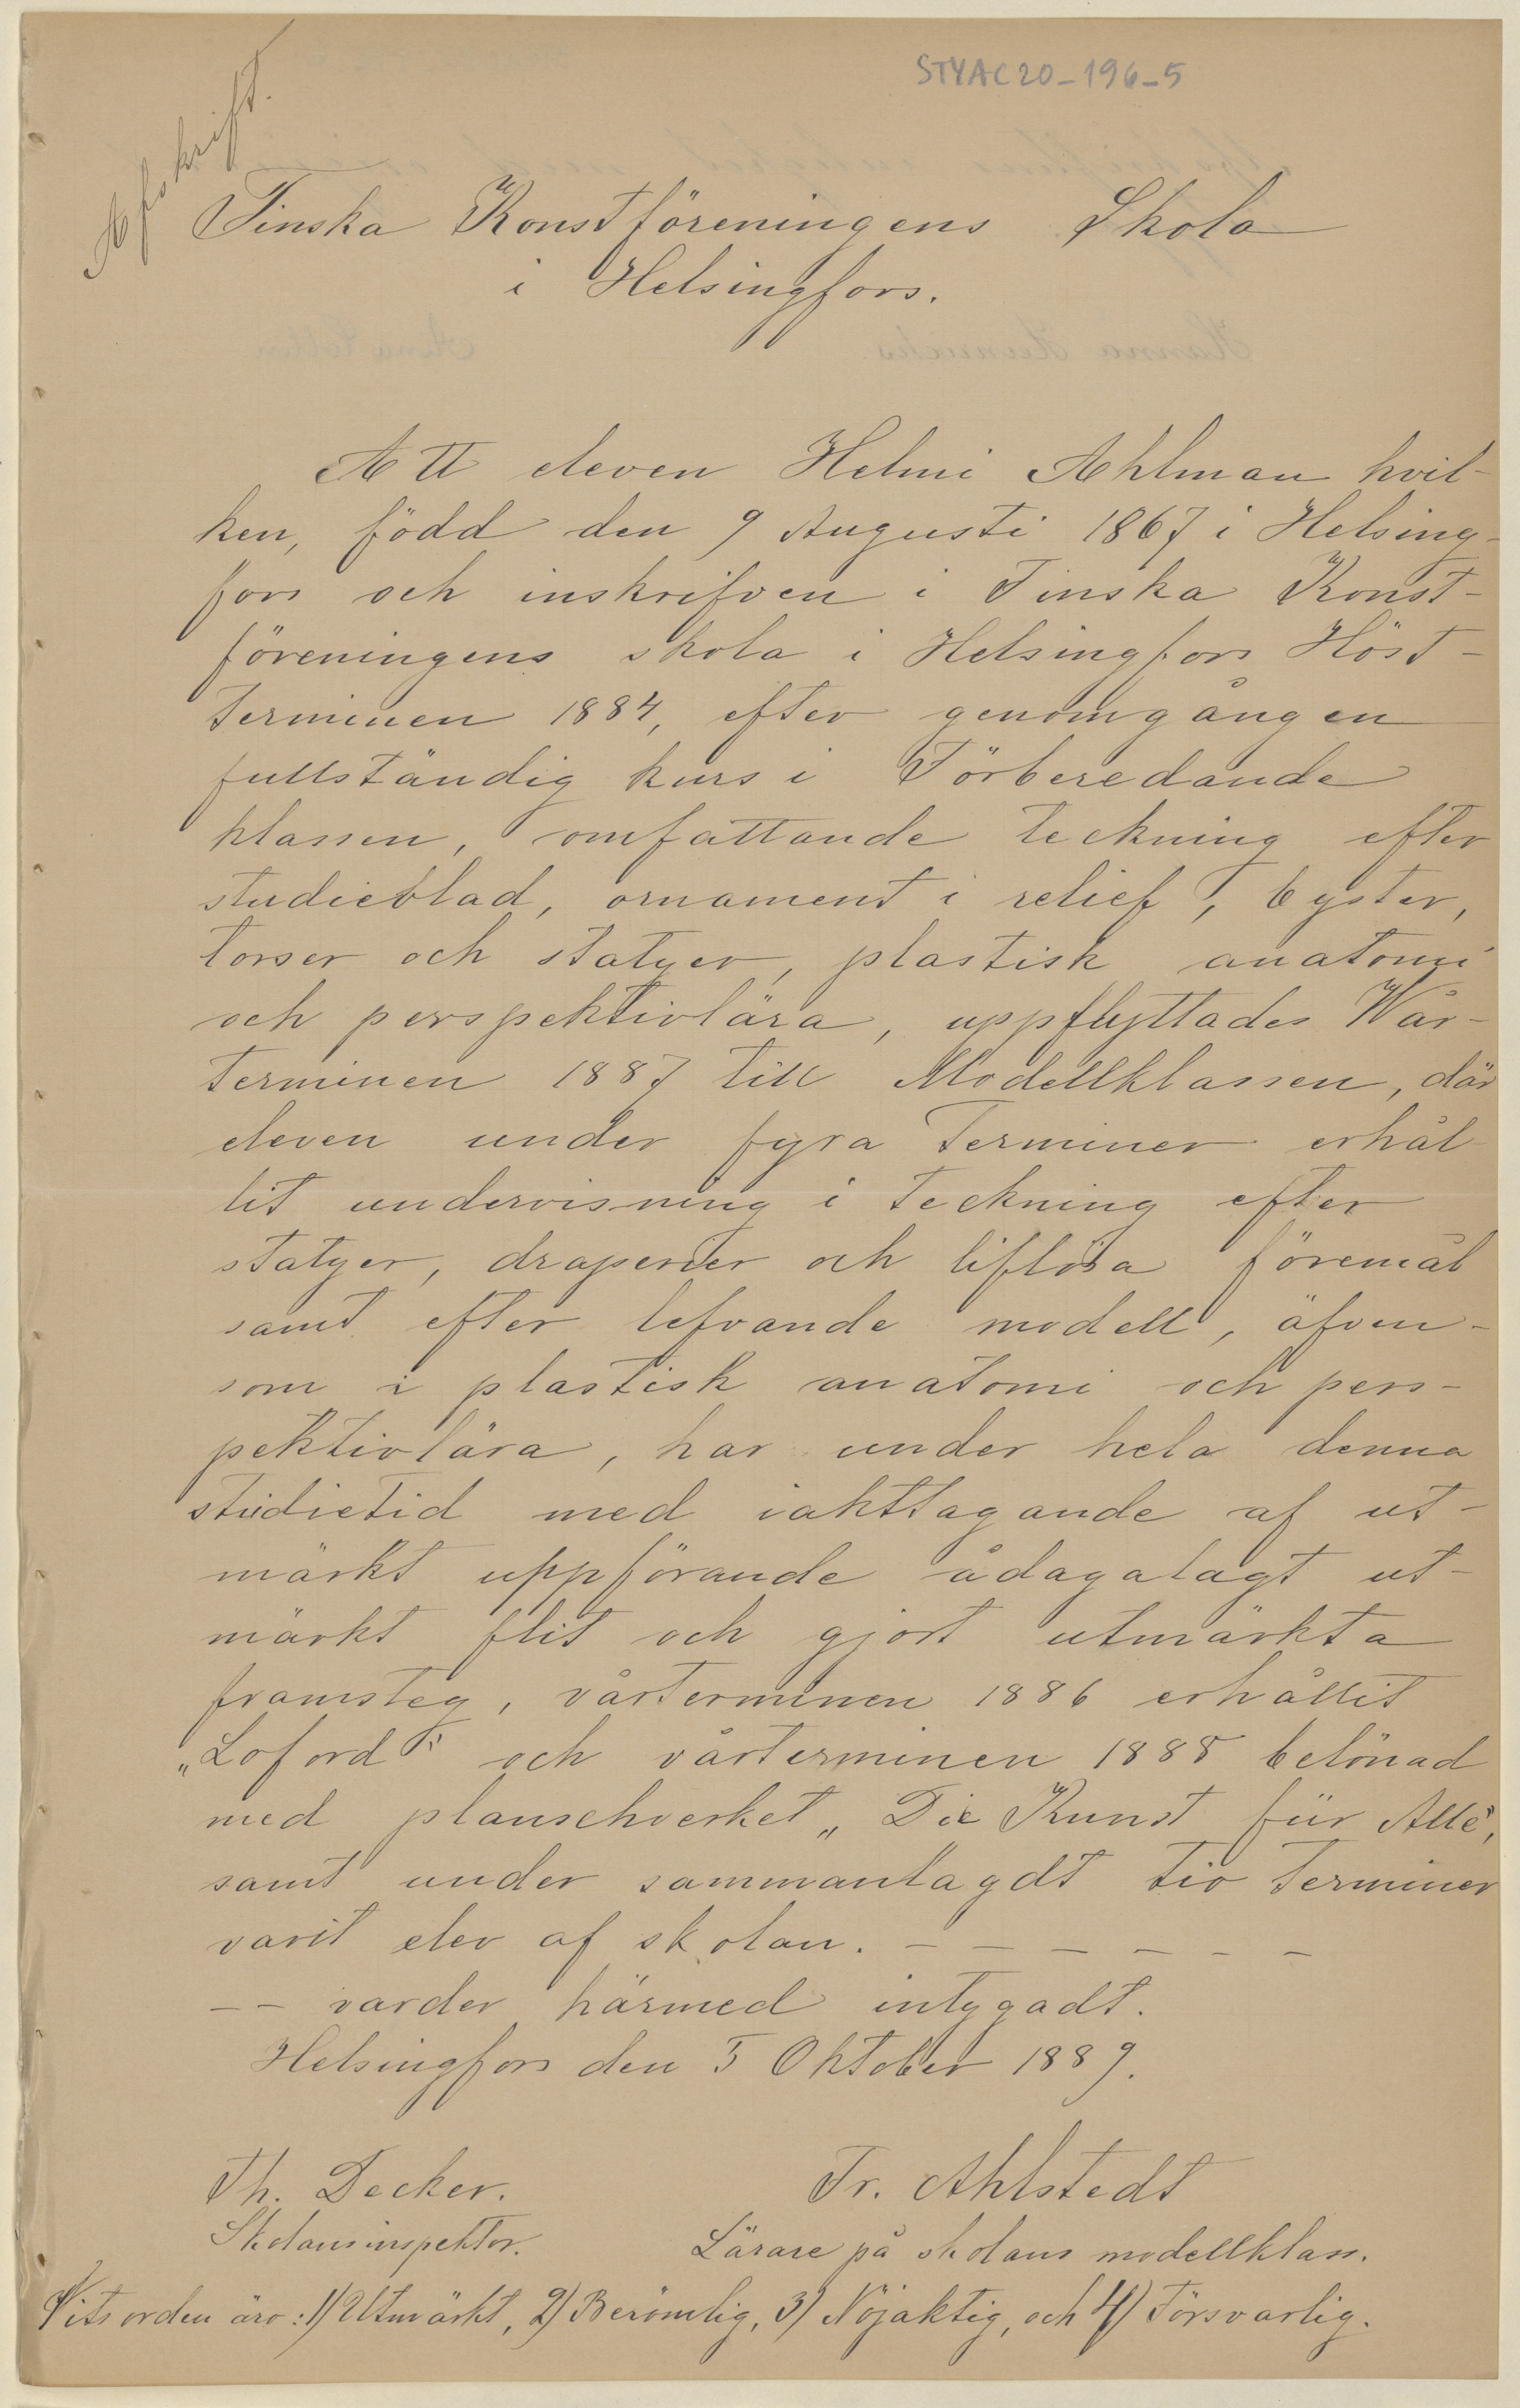 STYAC20-196-5
Afskrift.
Finska Konstföreningens Skola
i Helsingfors.
Att eleven Helmi Ahlman hvil-
ken, född den 9 Augusti 1867 i Helsing-
fors och inskrifven i Finska Konst-
föreningens skola i Helsingfors Höst-
terminen 1884, efter genomgången
fullständig kurs i Förberedande
klassen, omfattande teckning efter
studieblad, ornament i relief, byster,
torser och statyer, plastisk anatomi
och perspektivlära, uppflyttades Vår-
terminen 1887 till Modellklassen, där
eleven under fyra Terminer erhål-
lit undervisning i teckning efter
statyer, draperier och liflösa föremål
samt efter lefvande modell, äfven-
som i plastisk anatomi och pers-
pektivlära, har under hela denna
studietid med iakttagande af ut-
märkt uppförande ådagalagt ut-
märkt flit och gjort utmärkta
framsteg, vårterminen 1886 erhållit
„Loford" och vårterminen 1888 belönad
med planschverket „Die Kunst für Alle",
samt under sammanlagdt tio Terminer
varit elev af skolan. - - - - - -
- - varder härmed intygadt.
Helsingfors den 5 Oktober 1889.
Th. Decker. Fr. Ahlstedt
Skolans inspektor. Lärare på skolans modellklass.
Vitsorden äro: 1) Utmärkt, 2) Berömlig, 3) Nöjaktig, och 4) Försvarlig.